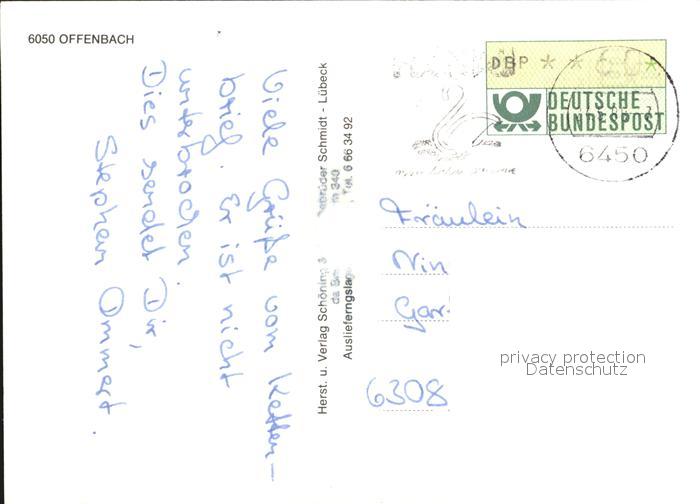 6050 OFFENBACH
Viele Grüße vom Ketten-
brief. Er ist nicht
unterbrochen.
Dies sendet Dir,
Stephan Ommert.
Herst. u. Verlag Schöning
Gebrüder Schmidt - Lübeck
Auslieferungslag
Tel. 6 66 34 92
DBP
DEUTSCHE
BUNDESPOST
6450
Fräulein
Nin
Gar
6308
privacy protection
Datenschutz